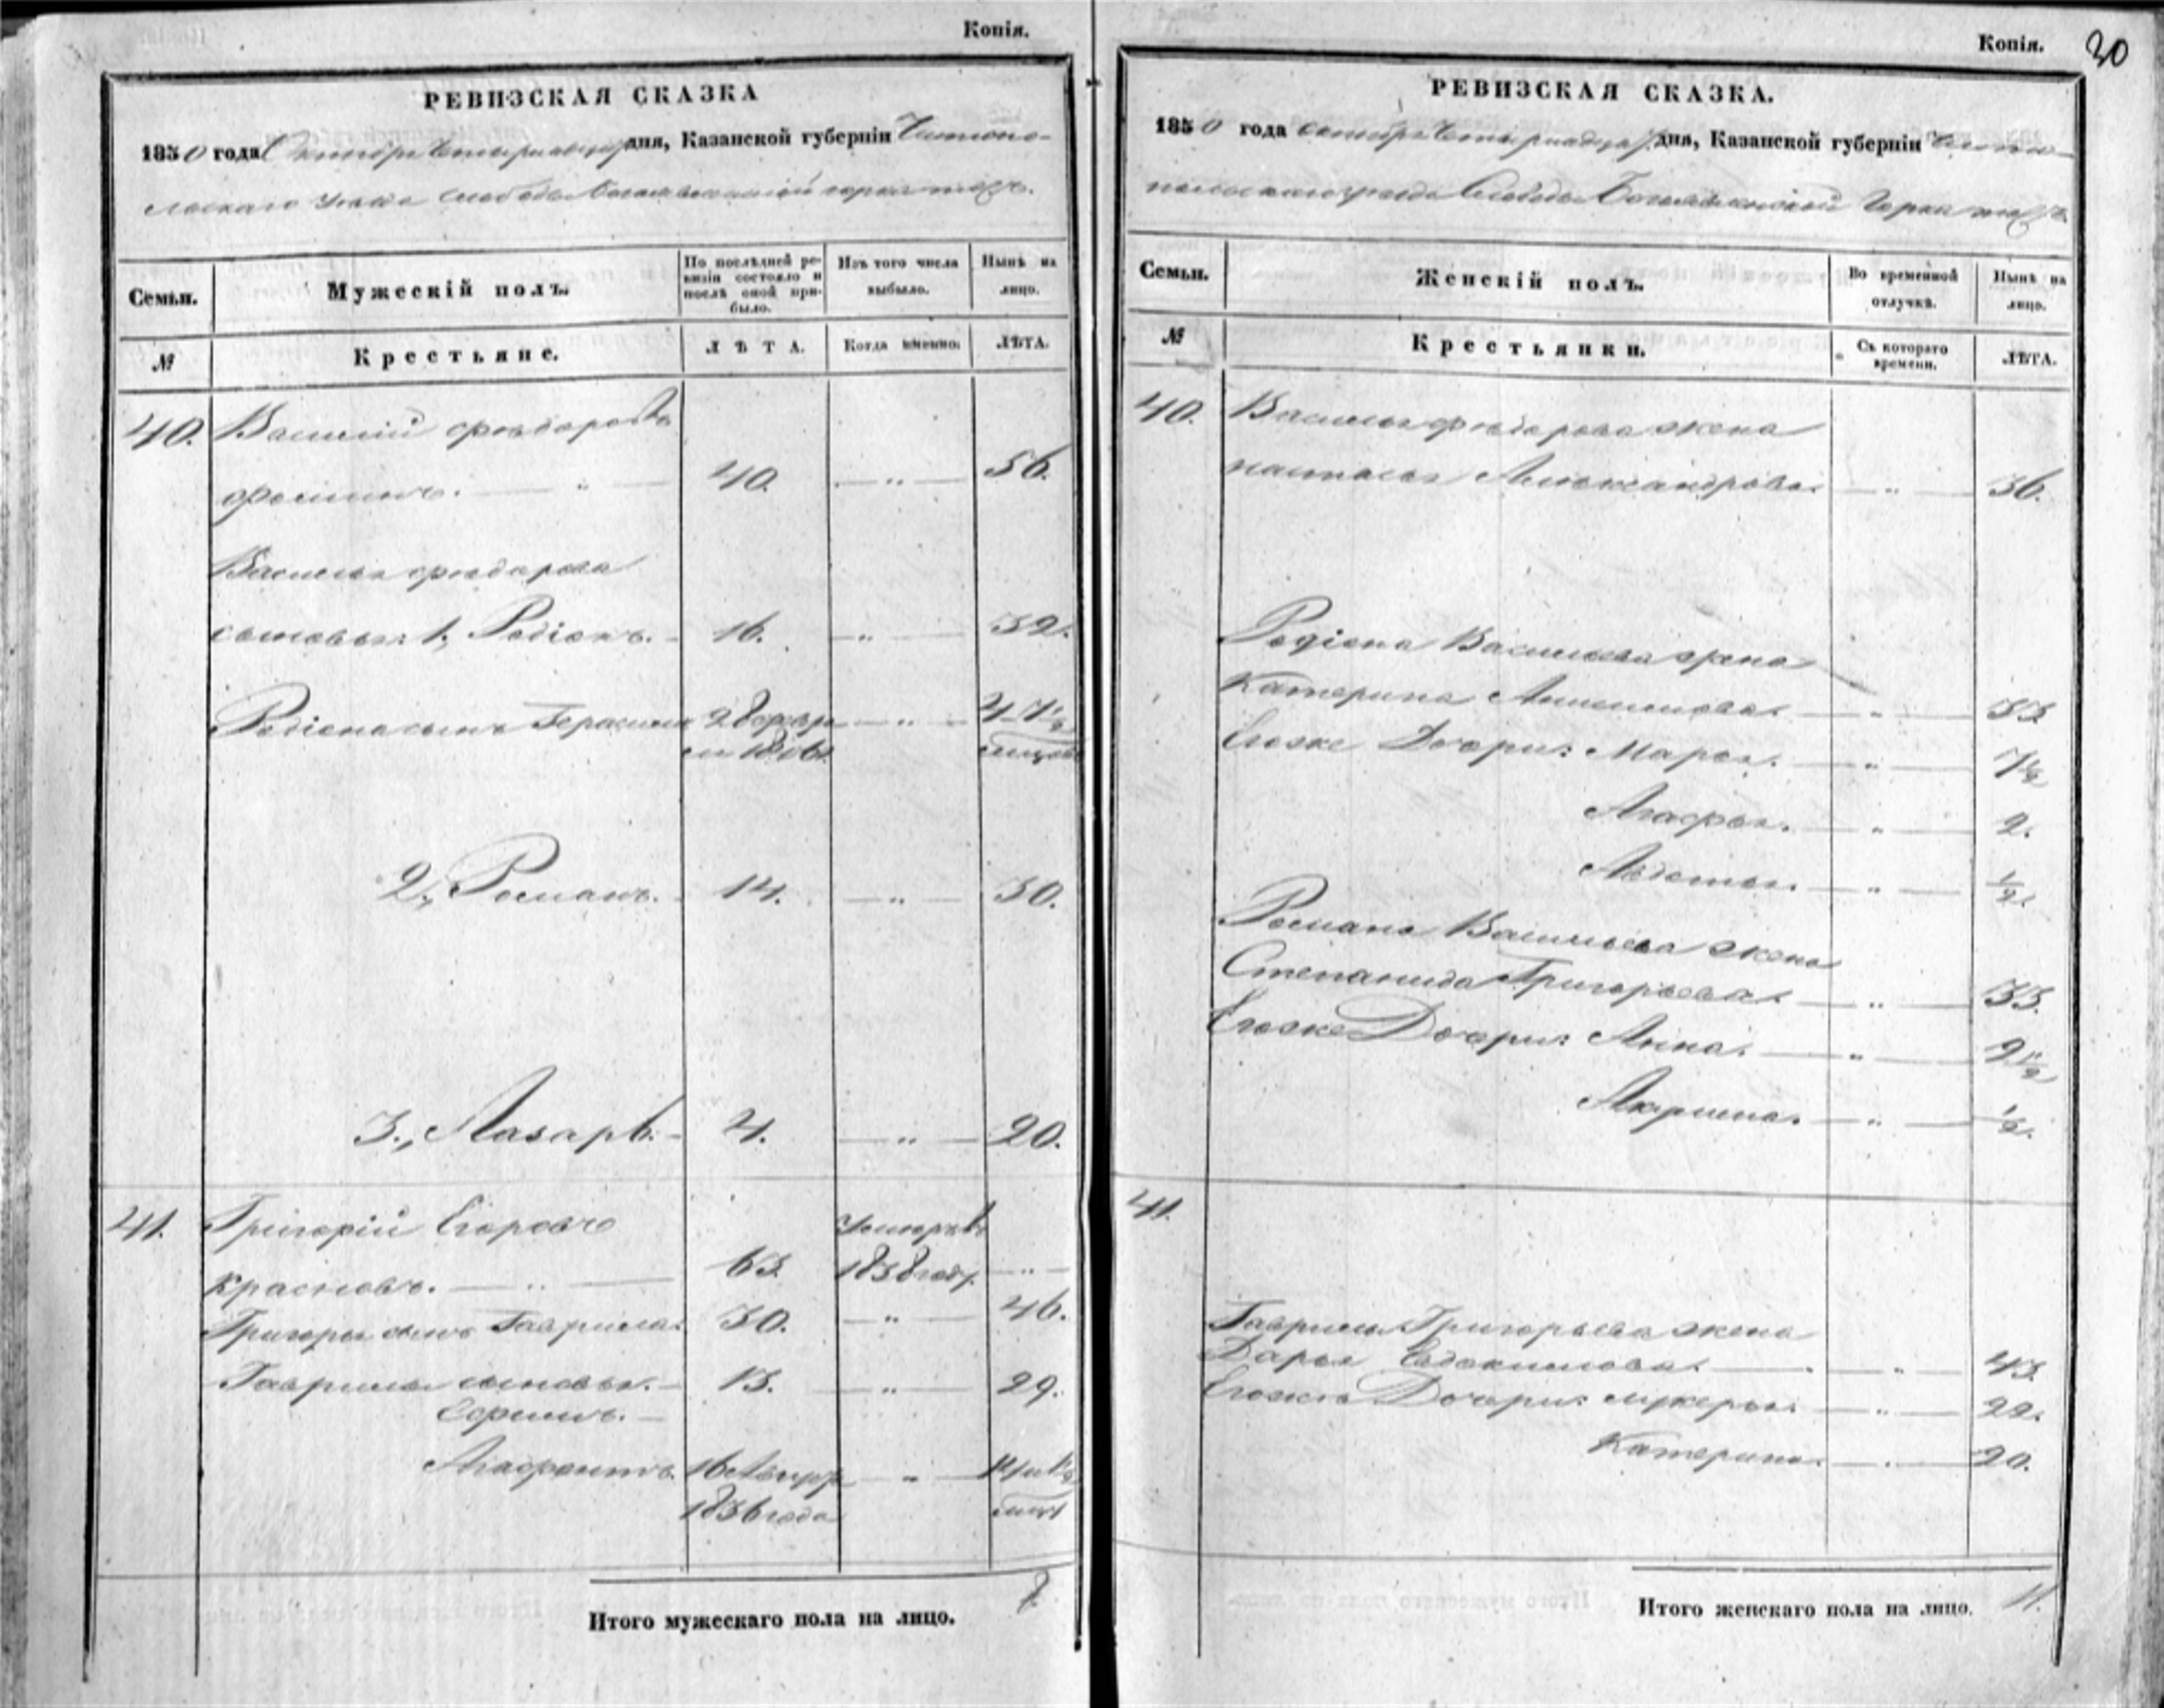 Копія.
РЕВИЗСКАЯ СКАЗКА
1850 года Октября Четырнадцат дня, Казанской губерніи Чистопо-
льскаго уезда слободы Богоявленской горка тожъ.
Семьи.
Мужескій полъ.
По послѣдней ре-
визіи состояло и
послѣ оной при-
было.
Изъ того числа
выбыло.
Нынѣ на
лицо.
№
Крестьяне.
ЛѢТА.
Когда именно.
ЛѢТА.
40. Василій Фьодоровъ
Фоминъ. — " — 40. — " — 56.
Василья Фьодорова
сыновья: 1, Родіонъ. — 16. — " — 32.
Родіона сынъ Герасимъ 28 февра — " —
2., Романъ. 14. — " — 30.
3., Лазарь. — 4. — " — 20.
41. Григорій Егоровъ умеръ
Красновъ. — " — 65. 1838 году. — " —
Григорья сынъ Гаврила. 30. — " — 46.
Гаврилы сыновья. — 13. — " — 29.
Ефимъ. —
Агафонъ. 16
1836 года
Итого мужескаго пола на лицо. 7.
Копія. 20
РЕВИЗСКАЯ СКАЗКА.
1850 года октября Четырнадцат дня, Казанской губерніи Чисто-
польскаго уезда Слободы Богоявленской Горка тожъ.
Семьи.
Женскій полъ.
Во временной
отлучкѣ.
Нынѣ на
лицо.
№
Крестьянки.
Съ котораго
времени.
ЛѢТА.
40. Василья Фьодорова жена
Настасья Александрова. — " — 56.
Родіона Васильева жена
Катерина Анисимова. — " — 33.
Ея же Дочери: Марья. — " — 7½
Агафья. — " — 2.
Авдотья. — " — ½.
Романа Васильева жена
Степанида Григорьева. — " — 33.
Ея же Дочери: Анна. — " — 2½
Акулина. — " — ½.
41.
Гаврилы Григорьева жена
Дарья Евдокимова. — " — 43.
Ея же Дочери: Лукерья. — " — 22.
Катерина. — " — 20.
Итого женскаго пола на лицо. 11.